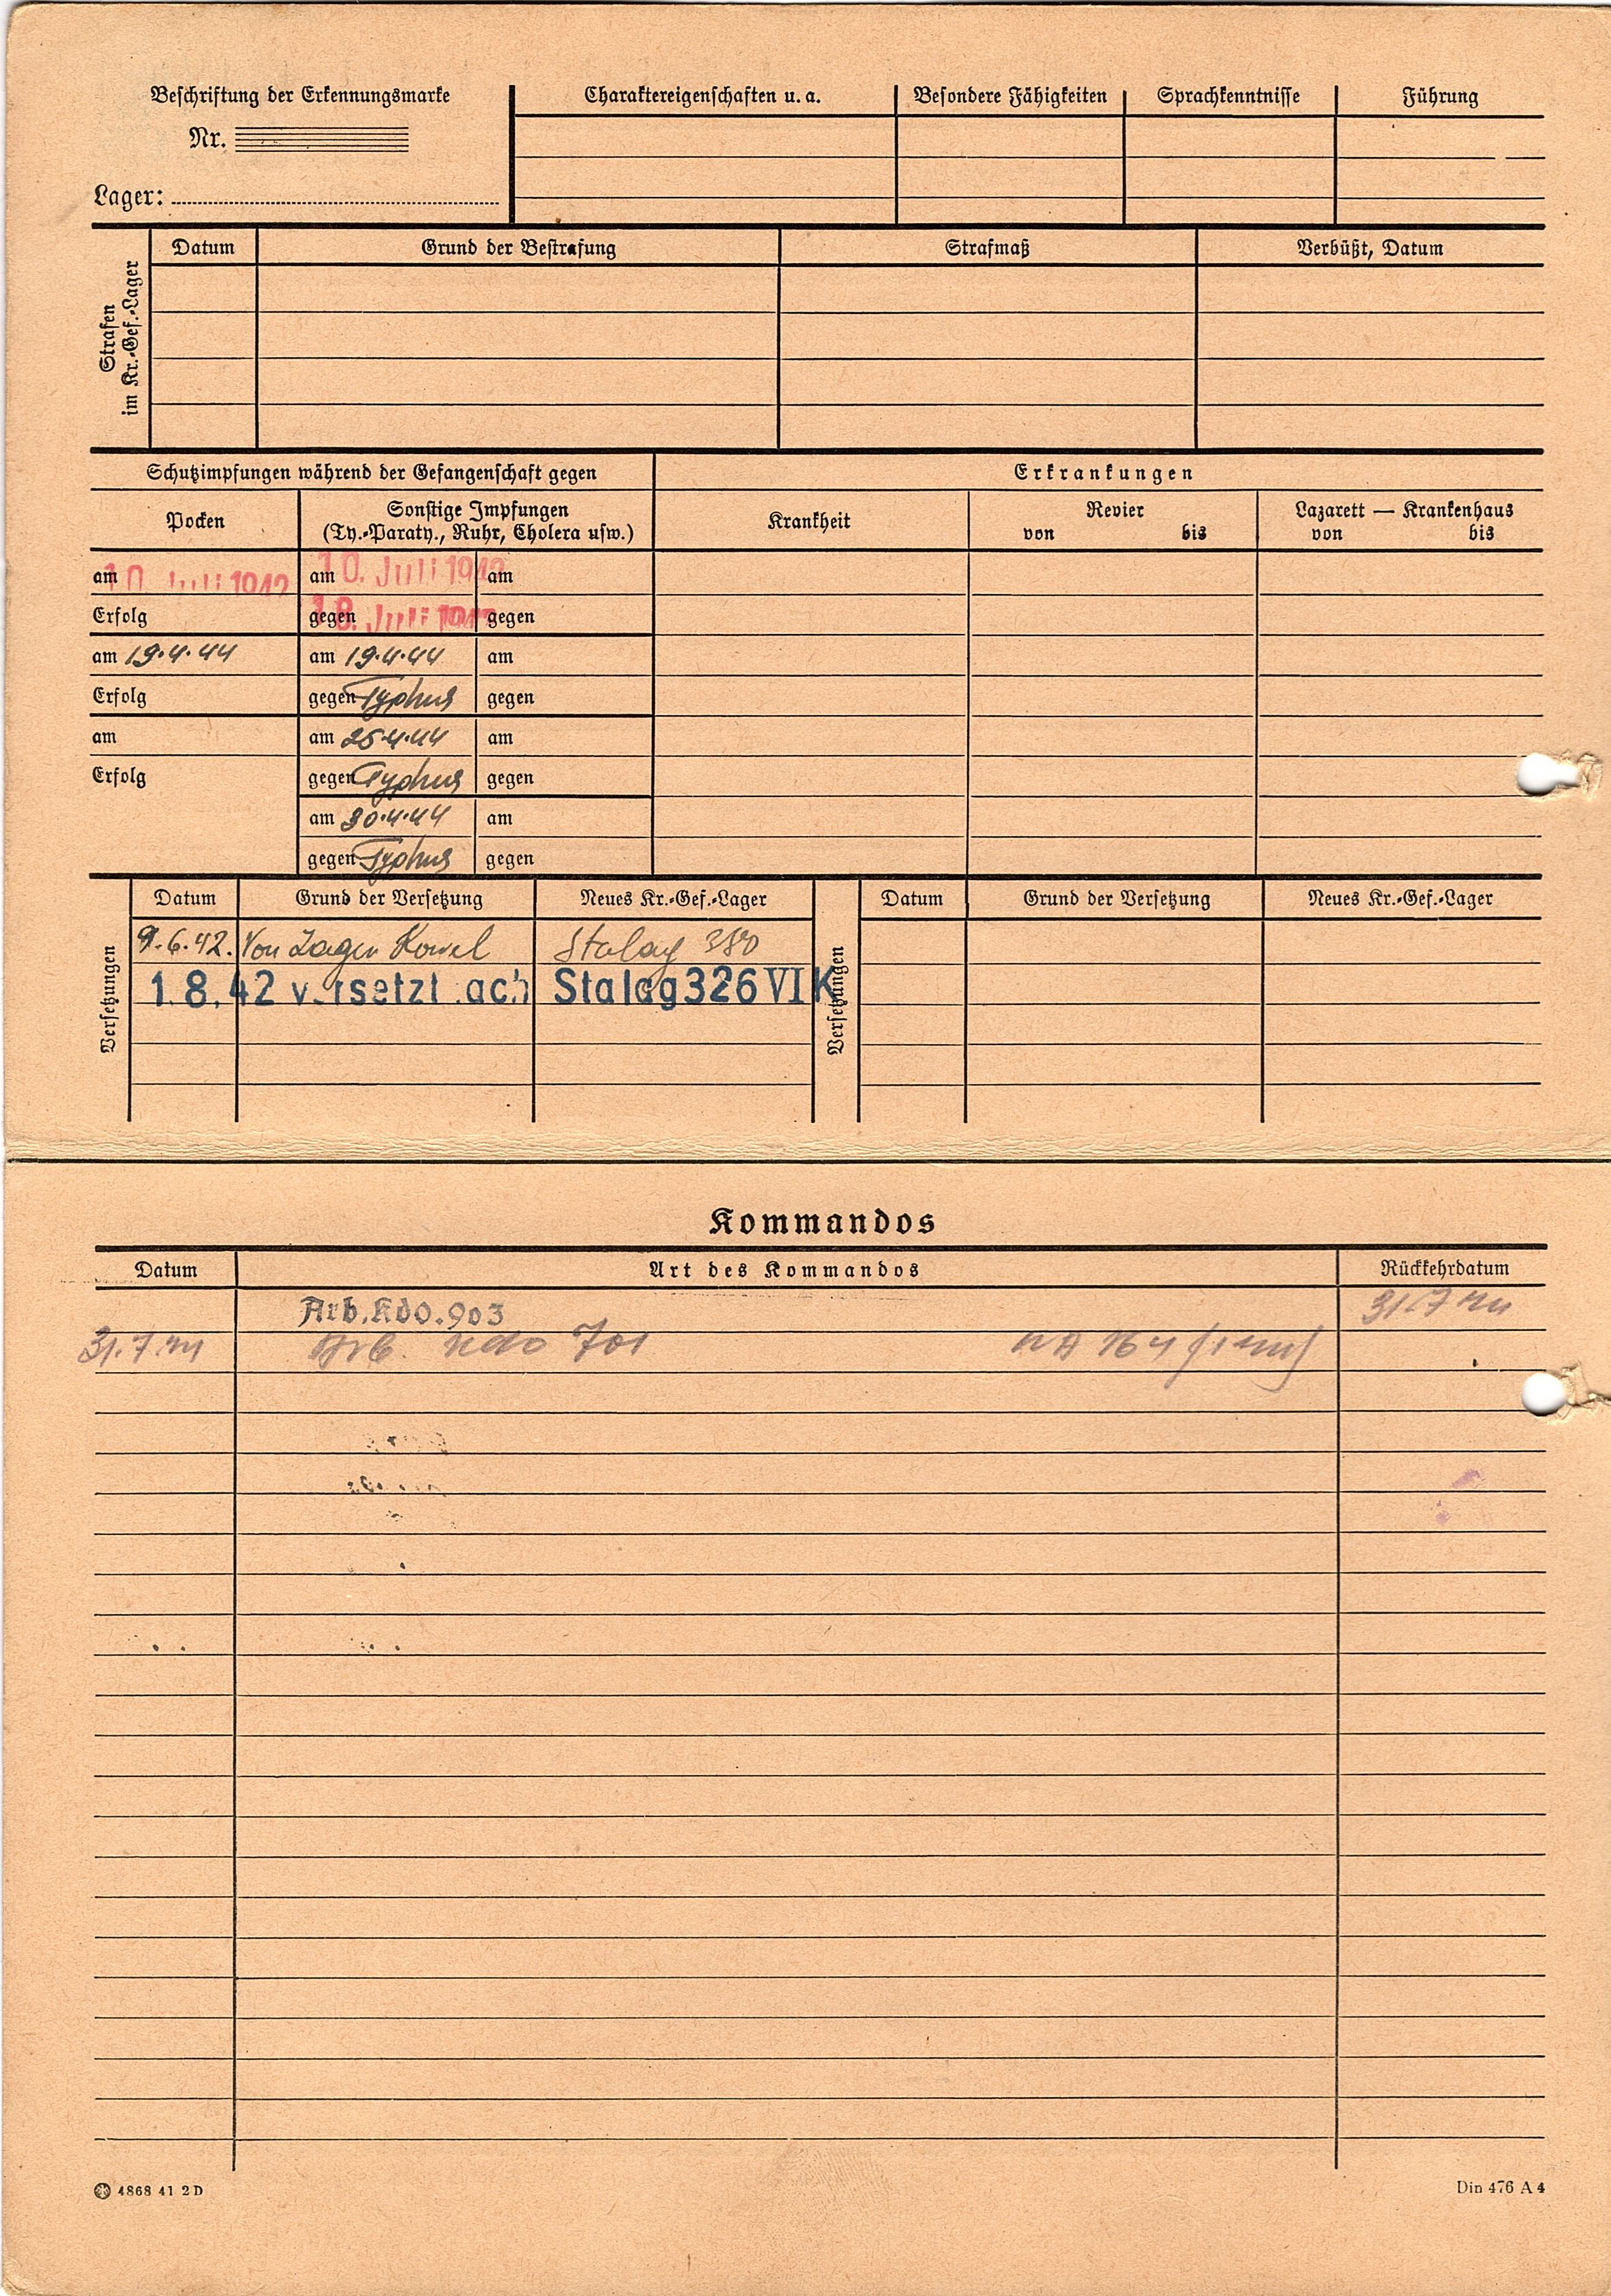 Beschriftung der Erkennungsmarke
Nr.
Lager:
Charaktereigenschaften u. a.
Besondere Fähigkeiten
Sprachkenntnisse
Führung
Strafen
im Kr.-Gef.-Lager
Datum
Grund der Bestrafung
Strafmaß
Verbüßt, Datum
Schutzimpfungen während der Gefangenschaft gegen
Erkrankungen
Pocken
Sonstige Impfungen
(Ty.-Paraty., Ruhr, Cholera usw.)
Krankheit
Revier
von bis
Lazarett — Krankenhaus
von bis
am 10. Juli 1942 am 10. Juli 1942 am
Erfolg gegen 18. Juli 1942 gegen
am 19.4.44 am 19.4.44 am
Erfolg gegen Typhus gegen
am am 25.4.44 am
Erfolg gegen Typhus gegen
am 30.4.44 am
gegen Typhus gegen
Versetzungen
Datum Grund der Versetzung Neues Kr.-Gef.-Lager
9.6.42. Von Lager Kowel Stalag 380
1.8.42 versetzt nach Stalag 326 VI K
Versetzungen
Datum Grund der Versetzung Neues Kr.-Gef.-Lager
Kommandos
Datum Art des Kommandos Rückkehrdatum
Arb.Kdo.903 31.7.44
31.7.44 Arb. Kdo 701
4868 41 2 D
Din 476 A 4